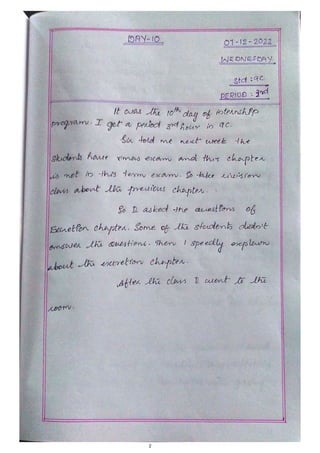 DAY-10
07-12-2022
WEDNESDAY
Std : 9C
PERIOD : 3rd
It was the 10th day of internship
program. I get a period 3rd hour in 9C.
Sir told me next week the
students have xmas exam and this chapter
is not in this term exam. So take revision
class about the previous chapter.
So I asked the questions of
Excretion chapter. Some of the students didn't
answer the questions. Then I speedly explain
about the excretion chapter.
After the class I went to the
room.
2